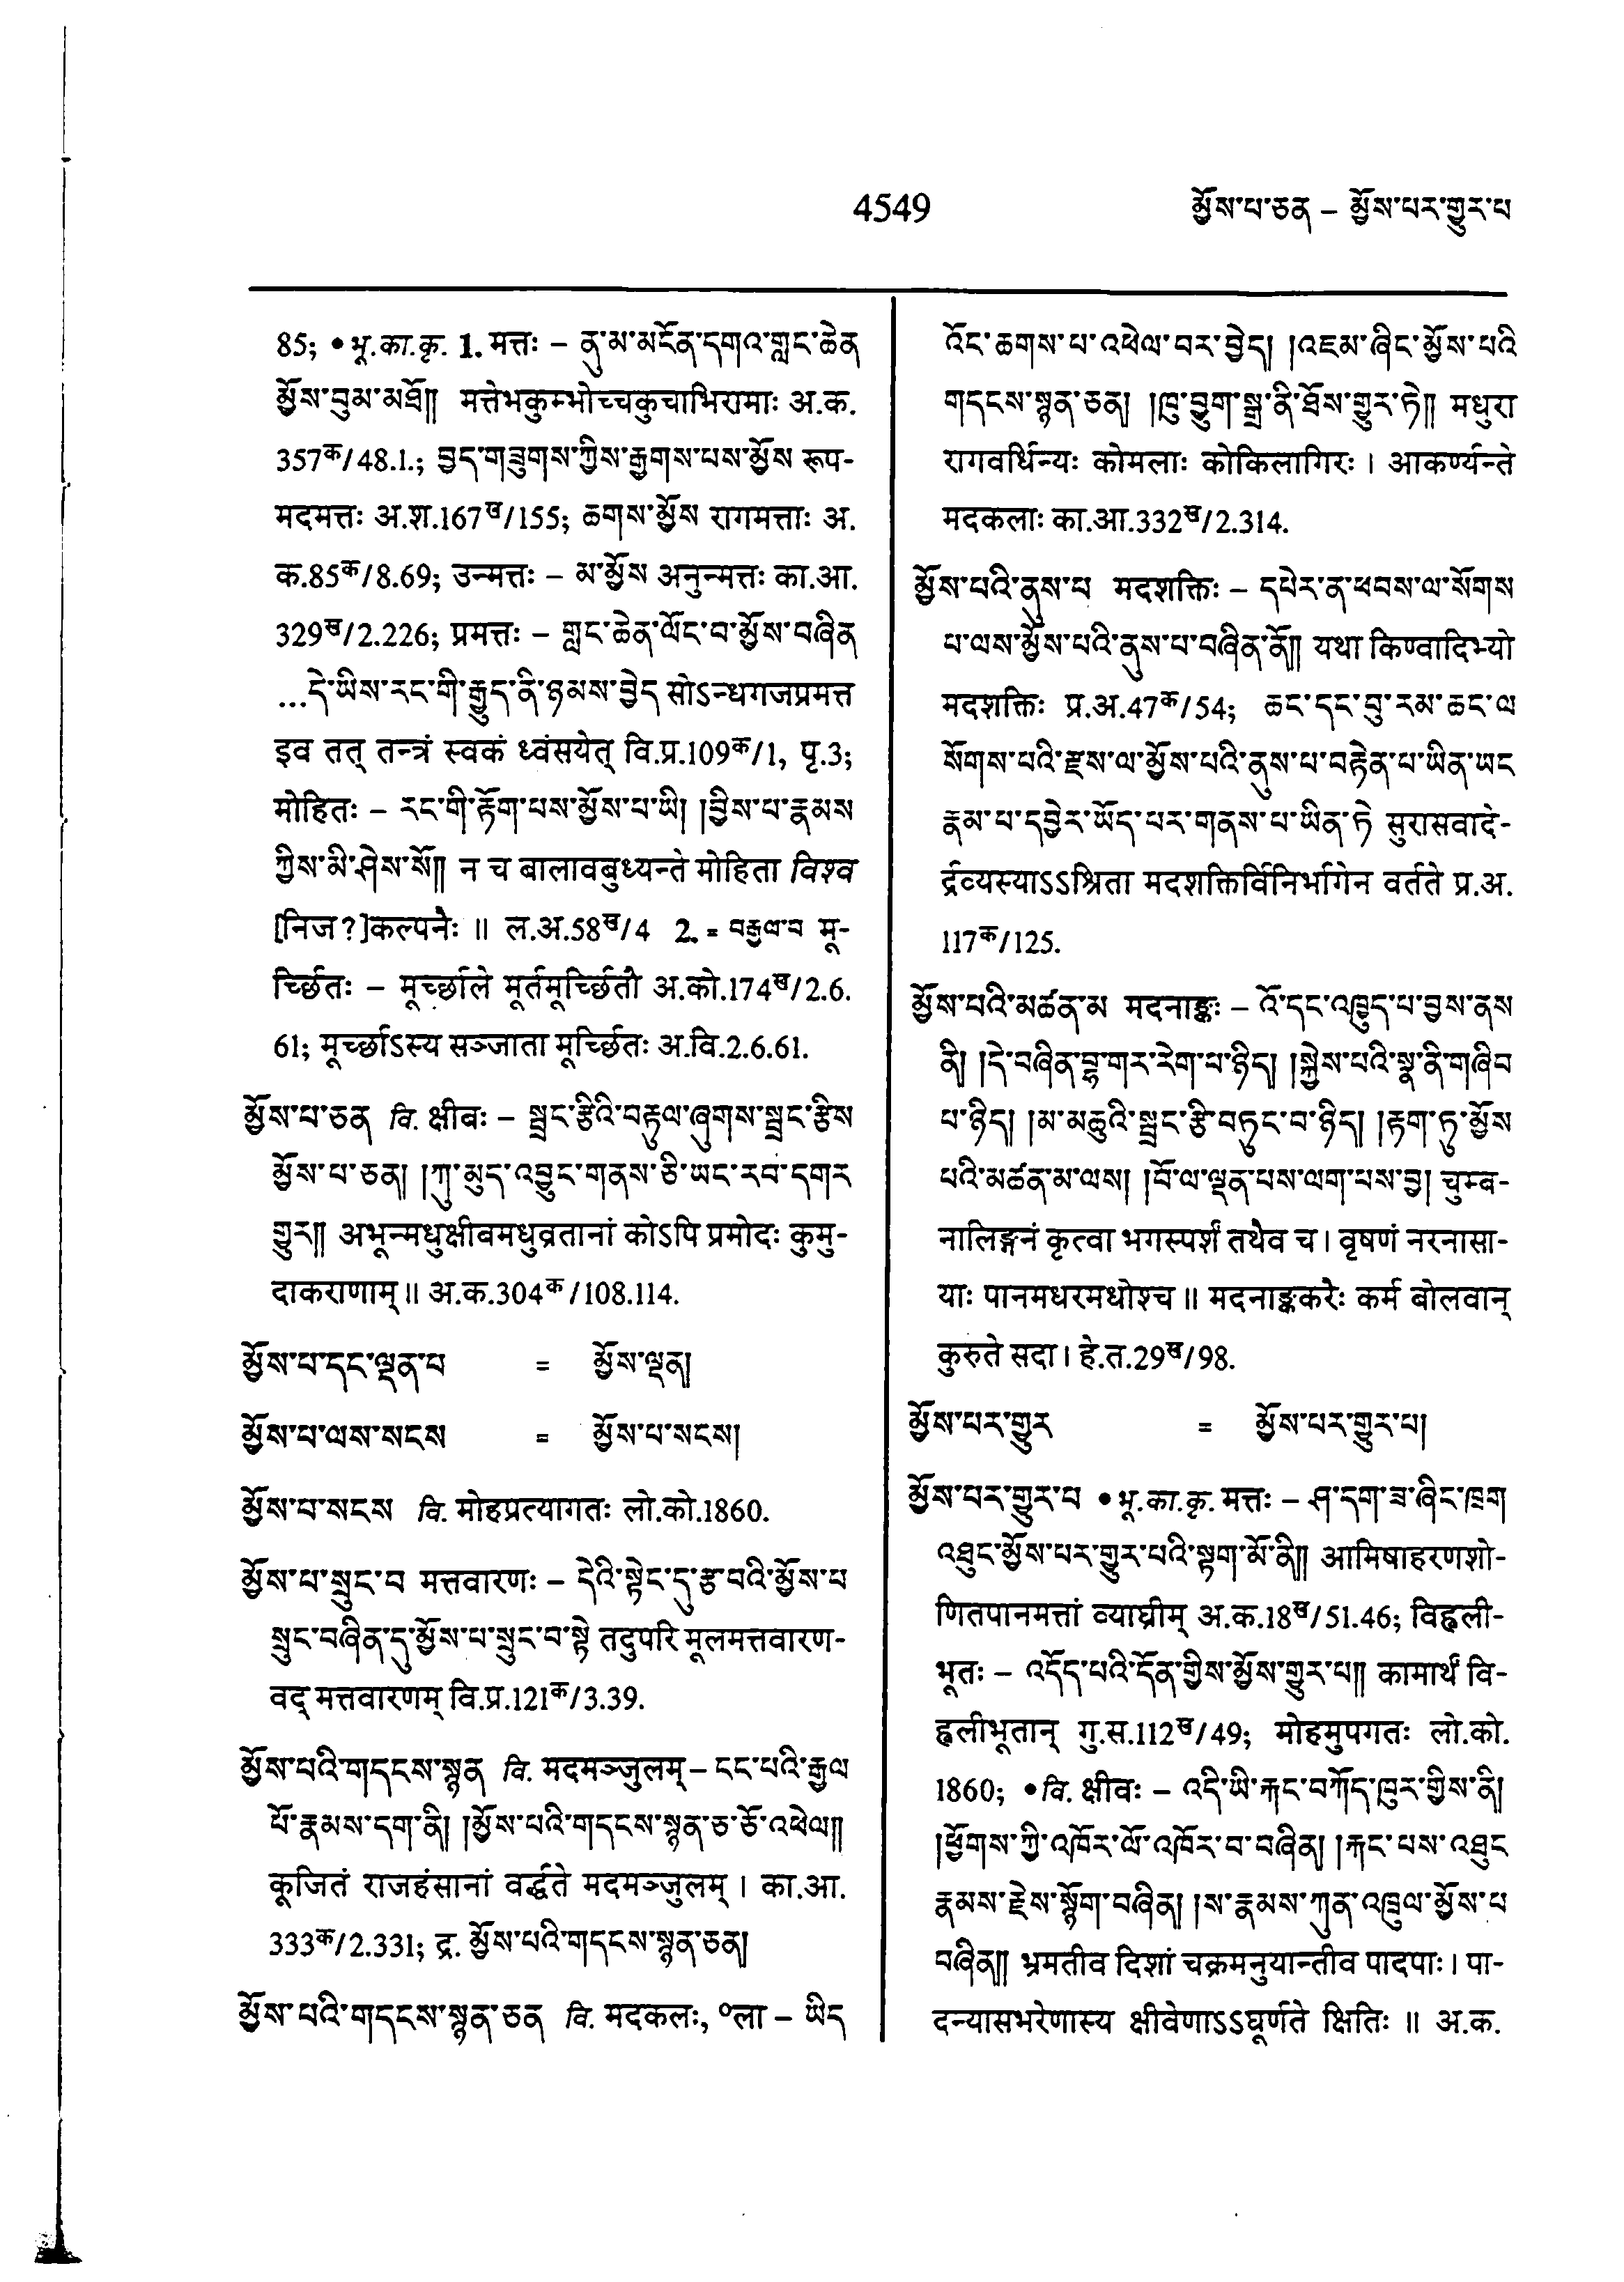 4549
མྱོས་པ་ཅན – མྱོས་པར་གྱུར་པ
85; • भू.का.कृ. 1. मत्तः – ནུ་མ་མངོན་དགའ་གླང་ཆེན
མྱོས་བུམ་མཐོ༎ मत्तेभकुम्भोच्चकुचाभिरामाः अ.क.
357क/48.1.; བྱད་གཟུགས་ཀྱིས་རྒྱགས་པས་མྱོས रूप-
मदमत्तः अ.श.167ख/155; ཆགས་མྱོས रागमत्ताः अ.
क.85क/8.69; उन्मत्तः – མ་མྱོས अनुन्मत्तः का.आ.
329ख/2.226; प्रमत्तः – གླང་ཆེན་ལོང་བ་མྱོས་བཞིན
...དེ་ཡིས་རང་གི་རྒྱུད་ནི་ཉམས་བྱེད सोऽन्धगजप्रमत्त
इव तत् तन्त्रं स्वकं ध्वंसयेत् वि.प्र.109क/1, पृ.3;
मोहितः – རང་གི་རྟོག་པས་མྱོས་པ་ཡི། །བྱིས་པ་རྣམས
ཀྱིས་མི་ཤེས་སོ༎ न च बालावबुध्यन्ते मोहिता विश्व
[निज?]कल्पनैः ॥ ल.अ.58ख/4 2. = བརྒྱལ་བ मू-
र्च्छितः – मूर्च्छाले मूर्तमूर्च्छितौ अ.को.174ख/2.6.
61; मूर्च्छाऽस्य सञ्जाता मूर्च्छितः अ.वि.2.6.61.
མྱོས་པ་ཅན वि. क्षीबः – སྦྲང་རྩིའི་བརྟུལ་ཞུགས་སྦྲང་རྩིས
མྱོས་པ་ཅན། །ཀུ་མུད་འབྱུང་གནས་ཅི་ཡང་རབ་དགར
གྱུར༎ अभून्मधुक्षीवमधुव्रतानां कोऽपि प्रमोदः कुमु-
दाकराणाम् ॥ अ.क.304क/108.114.
མྱོས་པ་དང་ལྡན་པ = མྱོས་ལྡན།
མྱོས་པ་ལས་སངས = མྱོས་པ་སངས།
མྱོས་པ་སངས वि. मोहप्रत्यागतः लो.को.1860.
མྱོས་པ་སྲུང་བ मत्तवारणः – དེའི་སྟེང་དུ་རྩ་བའི་མྱོས་པ
སྲུང་བཞིན་དུ་མྱོས་པ་སྲུང་བ་སྟེ तदुपरि मूलमत्तवारण-
वद् मत्तवारणम् वि.प्र.121क/3.39.
མྱོས་པའི་གདངས་སྙན वि. मदमञ्जुलम् – ངང་པའི་རྒྱལ
པོ་རྣམས་དག་ནི། །མྱོས་པའི་གདངས་སྙན་ཅ་ཅོ་འཕེལ༎
कूजितं राजहंसानां वर्द्धते मदमञ्जुलम् । का.आ.
333क/2.331; द्र. མྱོས་པའི་གདངས་སྙན་ཅན།
མྱོས་པའི་གདངས་སྙན་ཅན वि. मदकलः, ०ला – ཡིད
འོང་ཆགས་པ་འཕེལ་བར་བྱེད། །འཇམ་ཞིང་མྱོས་པའི
གདངས་སྙན་ཅན། །ཁུ་བྱུག་སྒྲ་ནི་ཐོས་གྱུར་ཏེ༎ मधुरा
रागवर्धिन्यः कोमलाः कोकिलागिरः । आकर्ण्यन्ते
मदकलाः का.आ.332ख/2.314.
མྱོས་པའི་ནུས་པ मदशक्तिः – དཔེར་ན་ཕབས་ལ་སོགས
པ་ལས་མྱོས་པའི་ནུས་པ་བཞིན་ནོ༎ यथा किण्वादिभ्यो
मदशक्तिः प्र.अ.47क/54; ཆང་དང་བུ་རམ་ཆང་ལ
སོགས་པའི་རྫས་ལ་མྱོས་པའི་ནུས་པ་བརྟེན་པ་ཡིན་ཡང
རྣམ་པ་དབྱེར་ཡོད་པར་གནས་པ་ཡིན་ཏེ सुरासवादे-
र्द्रव्यस्याऽऽश्रिता मदशक्तिर्विनिर्भागेन वर्तते प्र.अ.
117क/125.
མྱོས་པའི་མཚན་མ मदनाङ्कः – འོ་དང་འཁྱུད་པ་བྱས་ནས
ནི། །དེ་བཞིན་བྷ་གར་རེག་པ་ཉིད། །སྐྱེས་པའི་སྣ་ནི་གཞིབ
པ་ཉིད། །མ་མཆུའི་སྦྲང་རྩི་བཏུང་བ་ཉིད། །རྟག་ཏུ་མྱོས
པའི་མཚན་མ་ལས། །བོ་ལ་ལྡན་པས་ལག་པས་བྱ། चुम्ब-
नालिङ्गनं कृत्वा भगस्पर्शं तथैव च । वृषणं नरनासा-
याः पानमधरमधोश्च ॥ मदनाङ्ककरैः कर्म बोलवान्
कुरुते सदा । हे.त.29ख/98.
མྱོས་པར་གྱུར = མྱོས་པར་གྱུར་པ།
མྱོས་པར་གྱུར་པ • भू.का.कृ. मत्तः – ཤ་དག་ཟ་ཞིང་ཁྲག
འཐུང་མྱོས་པར་གྱུར་པའི་སྟག་མོ་ནི༎ आमिषाहरणशो-
णितपानमत्तां व्याघ्रीम् अ.क.18ख/51.46; विह्वली-
भूतः – འདོད་པའི་དོན་གྱིས་མྱོས་གྱུར་པ༎ कामार्थं वि-
ह्वलीभूतान् गु.स.112ख/49; मोहमुपगतः लो.को.
1860; • वि. क्षीवः – འདི་ཡི་རྐང་བཀོད་ཁུར་གྱིས་ནི།
།ཕྱོགས་ཀྱི་འཁོར་ལོ་འཁོར་བ་བཞིན། །རྐང་པས་འཐུང
རྣམས་རྗེས་སྙོག་བཞིན། །ས་རྣམས་ཀུན་འཁྲུལ་མྱོས་པ
བཞིན༎ भ्रमतीव दिशां चक्रमनुयान्तीव पादपाः । पा-
दन्यासभरेणास्य क्षीवेणाऽऽघूर्णते क्षितिः ॥ अ.क.